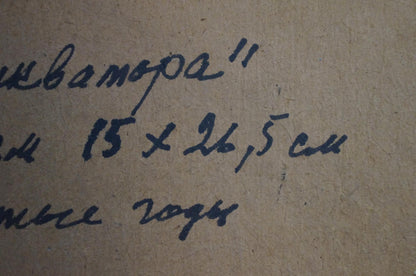 экватора"
см 15 х 26,5 см
тые годы